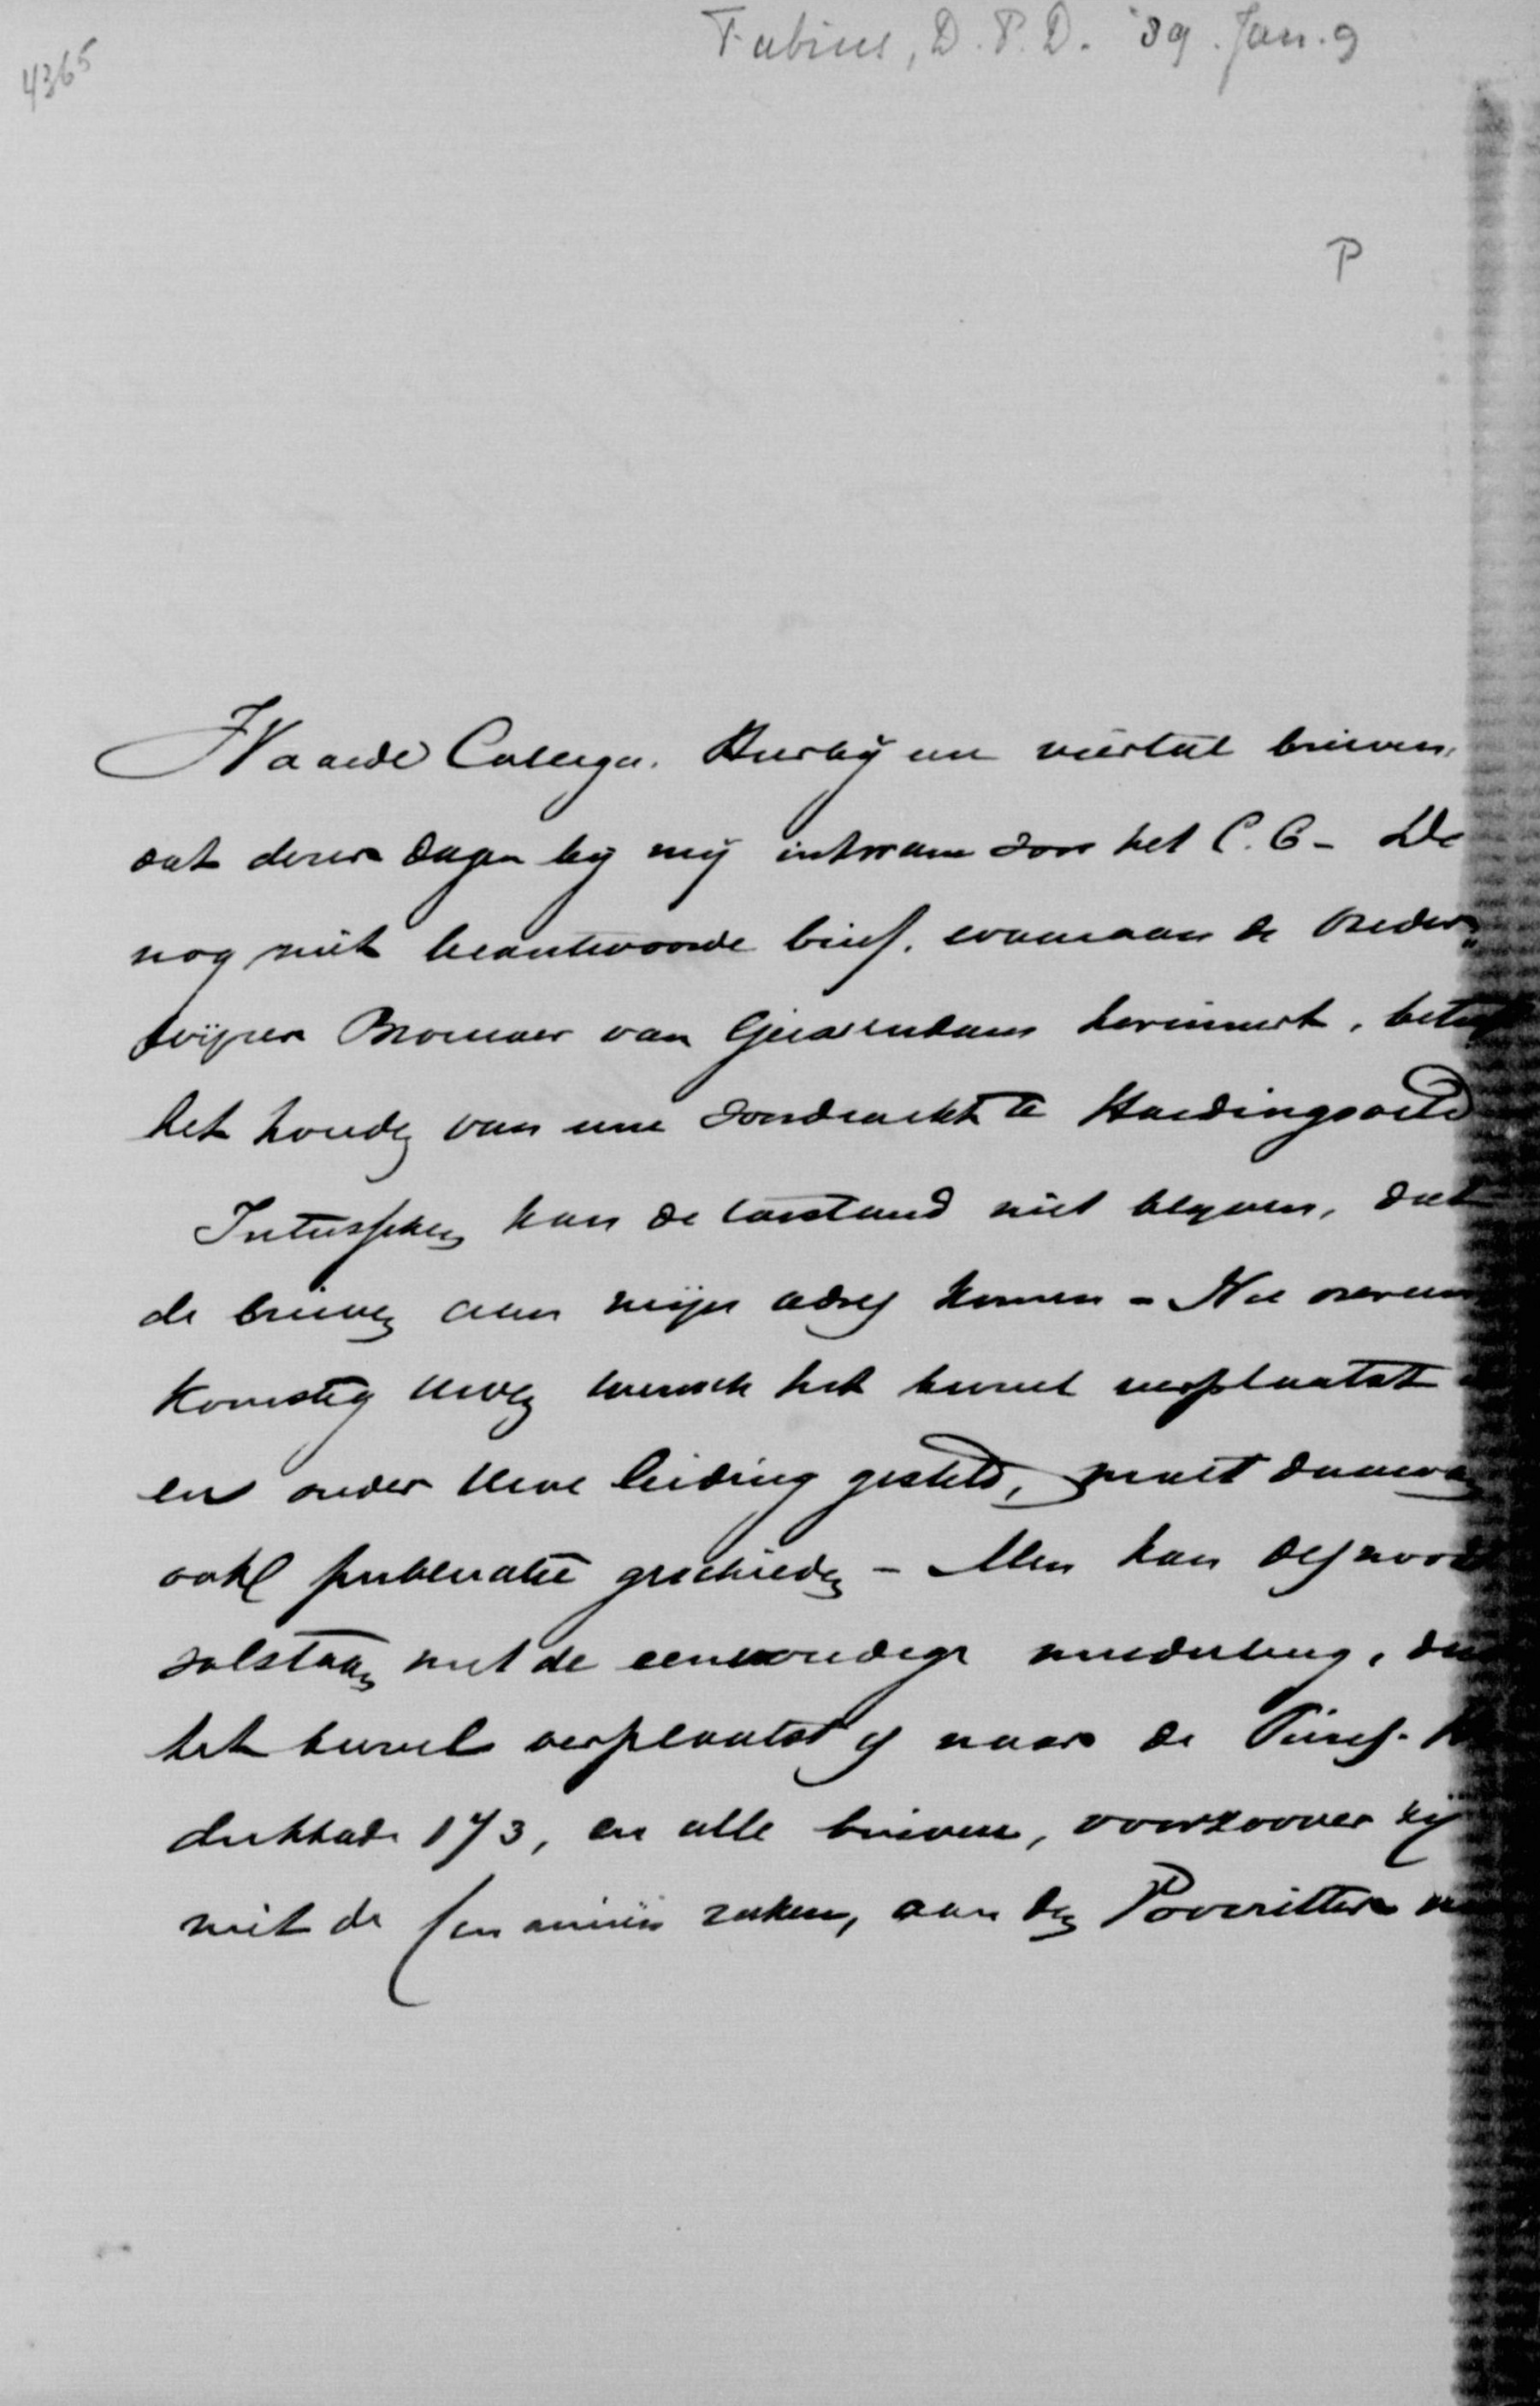 4365
Fabius, D. P. D. '89. Jan. 9
P
Waarde Collega. Hierbij een viertal brieven,
dat dezer dagen bij mij inkwam voor het C. C. - De
nog niet beantwoorde brief, waaraan de Heer
Brouwer van Giessendam herinnert, betreft
het houden van eene voordracht te Hardingsveld
Intusschen kan de toestand niet blijven, dat
de brieven aan mijn adres komen - Nu overeen
komstig Uwen wensch het bureel verplaatst
en onder Uwe leiding gesteld, moet daarvan
ook publicatie geschieden - Men kan desnoods
volstaan met de eenvoudige mededeeling, dat
het bureel verplaatst is naar de
173, en alle brieven, voorzoover zij
niet de financiën raken, aan den Voorzitter